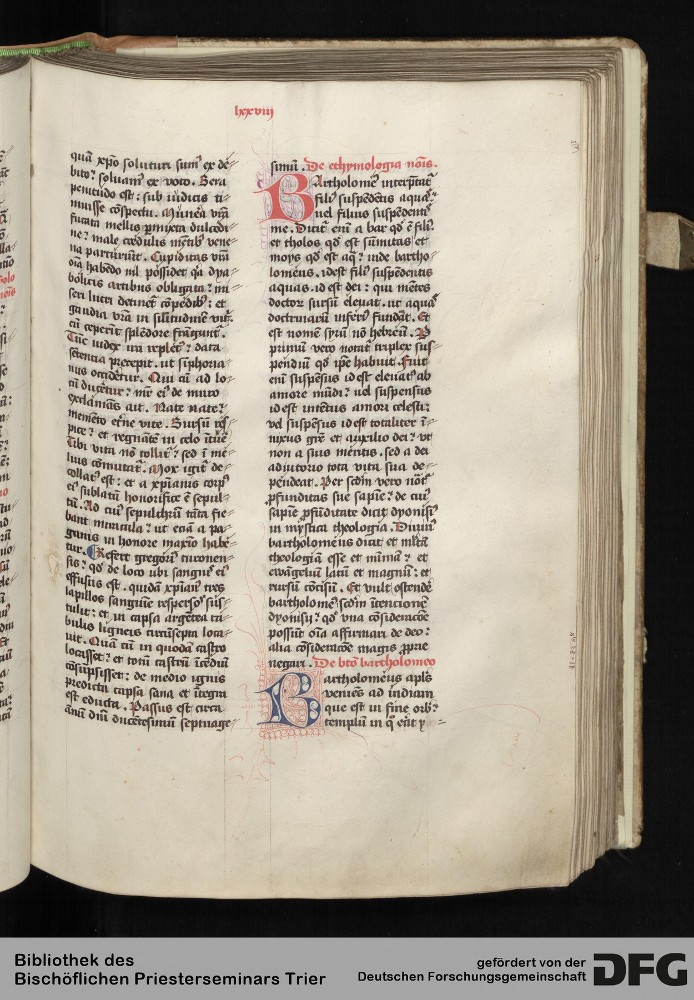 lxxviii
quā xp̄o soluturi sum⁹ ex de⸗
bito? soluam⁹ ex voto. Sera
penitudo est: sub iudicis ti⸗
muisse cōspectu. Munera vr̄a
fucata mellis ꝑmixta dulcedi⸗
ne? male credulis mētib⁹ vene⸗
na parturiūt. Cupiditas vr̄a
oīa habēdo nil possidet q̄a dya⸗
bolicis artibus obligata? mi⸗
seri lucri detinet cōpedib⁹: et
gaudia vr̄a in silitudinē vitr̄
cū ceperīt splēdore frāgunt.
Tūc iudex ira replet⁹? data
sētentia precepit. ut simphoria⸗
nus occideret. Qui cū ad lo⸗
cū duceret? mr̄ ei⁹ de muro
exclamās ait. Nate nate?
memēto et̄ne vite. Sursū res⸗
pice? et regnātē in celo ītue
Tibi vita nō tollit? sed ī me⸗
lius cōmutat. Mox igit̄ de⸗
collat⁹ est: et a xp̄ianis corp⁹
ei⁹ sublatū honorifice ē sepul⸗
tū. Ad cui⁹ sepulchrū tāta fie⸗
bant miracula? ut eciā a pa⸗
ganis in honore maxio habe⸗
tur. Refert gregori⁹ turonen⸗
sis? qd̄ de loco ubi sangui⁹ ei⁹
effusus est. quidā xp̄ian⁹ tres
lapillos sanguine resperso⁹ sus⸗
tulit: et in capsa argētea ta⸗
bulis ligneis circūsepta loca⸗
uit. Quā cū in quodā castro
locasset? et totū castrū īcēdiū
cōsūpsisset: de medio ignis
predicta capsa sana et ītegra
est educta. Passus est circa
ānū dn̄i ducētesimum septuage⸗
simū. De ethymologia nōis.
Bartholome⁹ interp̄tat̄
fili⁹ suspēdētis aquas?
uel filius suspēdenti⁹
me. Dicit̄ eni a bar qd̄ ē fili⁹
et tholos qd̄ est sūmitas et
moys qd̄ est aq̄? inde bartho⸗
lomeus. idest fili⁹ suspēdentis
aquas. id est dei: qui mētes
doctor⁊ sursū eleuat. ut aquas
doctrinarū inferi⁹ fundāt. Et
est nomē syrū nō hebreū. P̄
primū vero notat̄ triplex sus⸗
pendiū qd̄ ip̄e habuit. Fuit
eni suspēsus id est eleuat⁹ ab
amore mūdi? uel suspensus
id est intētus amori celesti:
vel suspēsus id est totaliter ī⸗
nixus gr̄e et auxilio dei? vt
non a suis meritis. sed a dei
adiutorio tota vita sua de⸗
pendeat. Per scd̄m vero nōt̄
ꝓfunditas sue sapiē? de cui⁹
sapīe ꝓfūditate dicit dyonisi⁹
in mystica theologia. Diuin⁹
bartholomeus dicit et mltā
theologiā esse et minimā? et
ewāgeliū latū et magnū: et
rursū cōcisū. Et vult ostendē
bartholome⁹ scd̄m ītencionē
dyonisii? qd̄ vna cōsideracōe
possūt oīa affirmari de deo:
alia cōsideracōe magis ꝓprie
negari. De btō bartholomeo
Bartholomeus apl̄s
veniēs ad indiam
que est in fine orb⁹?
templū in q̄ er̄at y⸗
Bibliothek des
Bischöflichen Priesterseminars Trier
gefördert von der
Deutschen Forschungsgemeinschaft
DFG